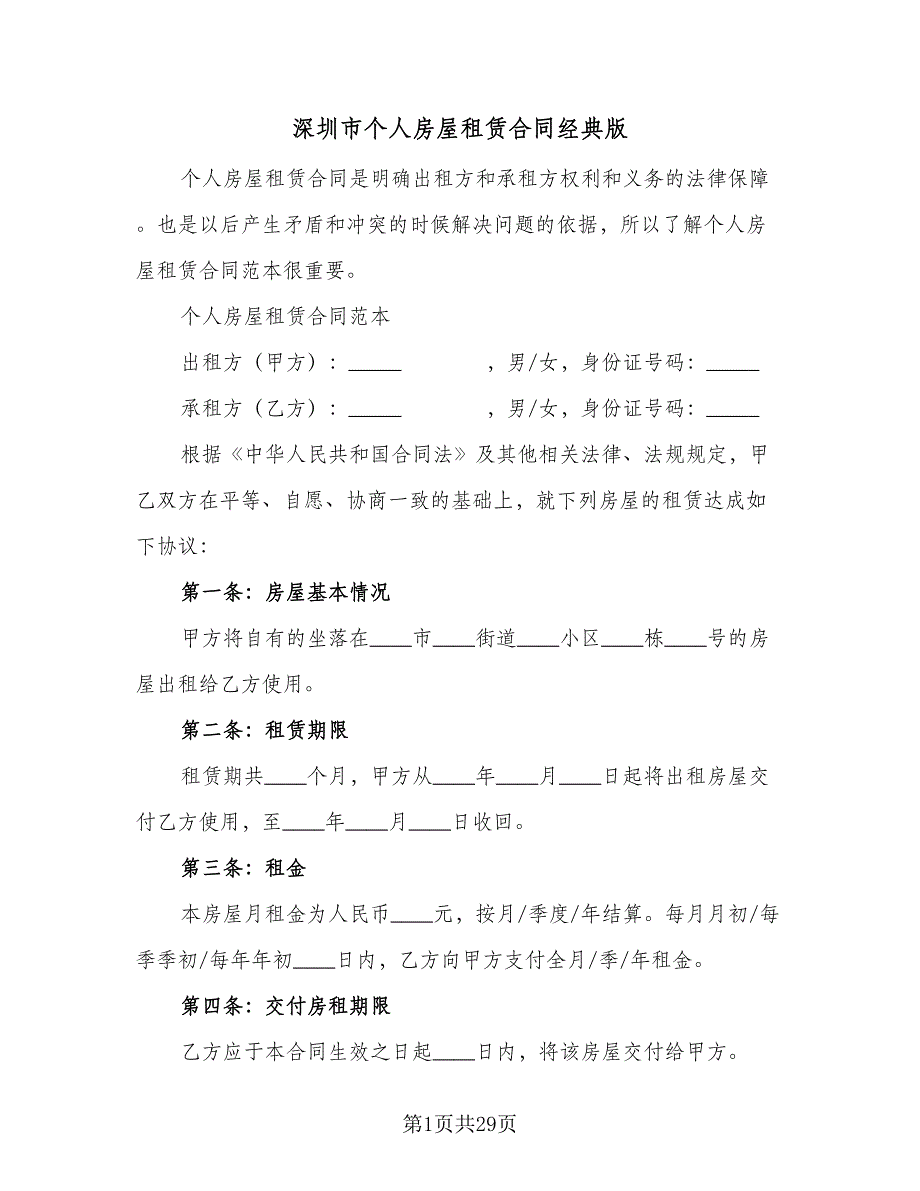 深圳市个人房屋租赁合同经典版
个人房屋租赁合同是明确出租方和承租方权利和义务的法律保障
。也是以后产生矛盾和冲突的时候解决问题的依据，所以了解个人房
屋租赁合同范本很重要。
个人房屋租赁合同范本
出租方（甲方）：_____ ，男/女，身份证号码：_____
承租方（乙方）：_____ ，男/女，身份证号码：_____
根据《中华人民共和国合同法》及其他相关法律、法规规定，甲
乙双方在平等、自愿、协商一致的基础上，就下列房屋的租赁达成如
下协议：
第一条：房屋基本情况
甲方将自有的坐落在____市____街道____小区____栋____号的房
屋出租给乙方使用。
第二条：租赁期限
租赁期共____个月，甲方从____年____月____日起将出租房屋交
付乙方使用，至____年____月____日收回。
第三条：租金
本房屋月租金为人民币____元，按月/季度/年结算。每月月初/每
季季初/每年年初____日内，乙方向甲方支付全月/季/年租金。
第四条：交付房租期限
乙方应于本合同生效之日起____日内，将该房屋交付给甲方。
第1页共29页